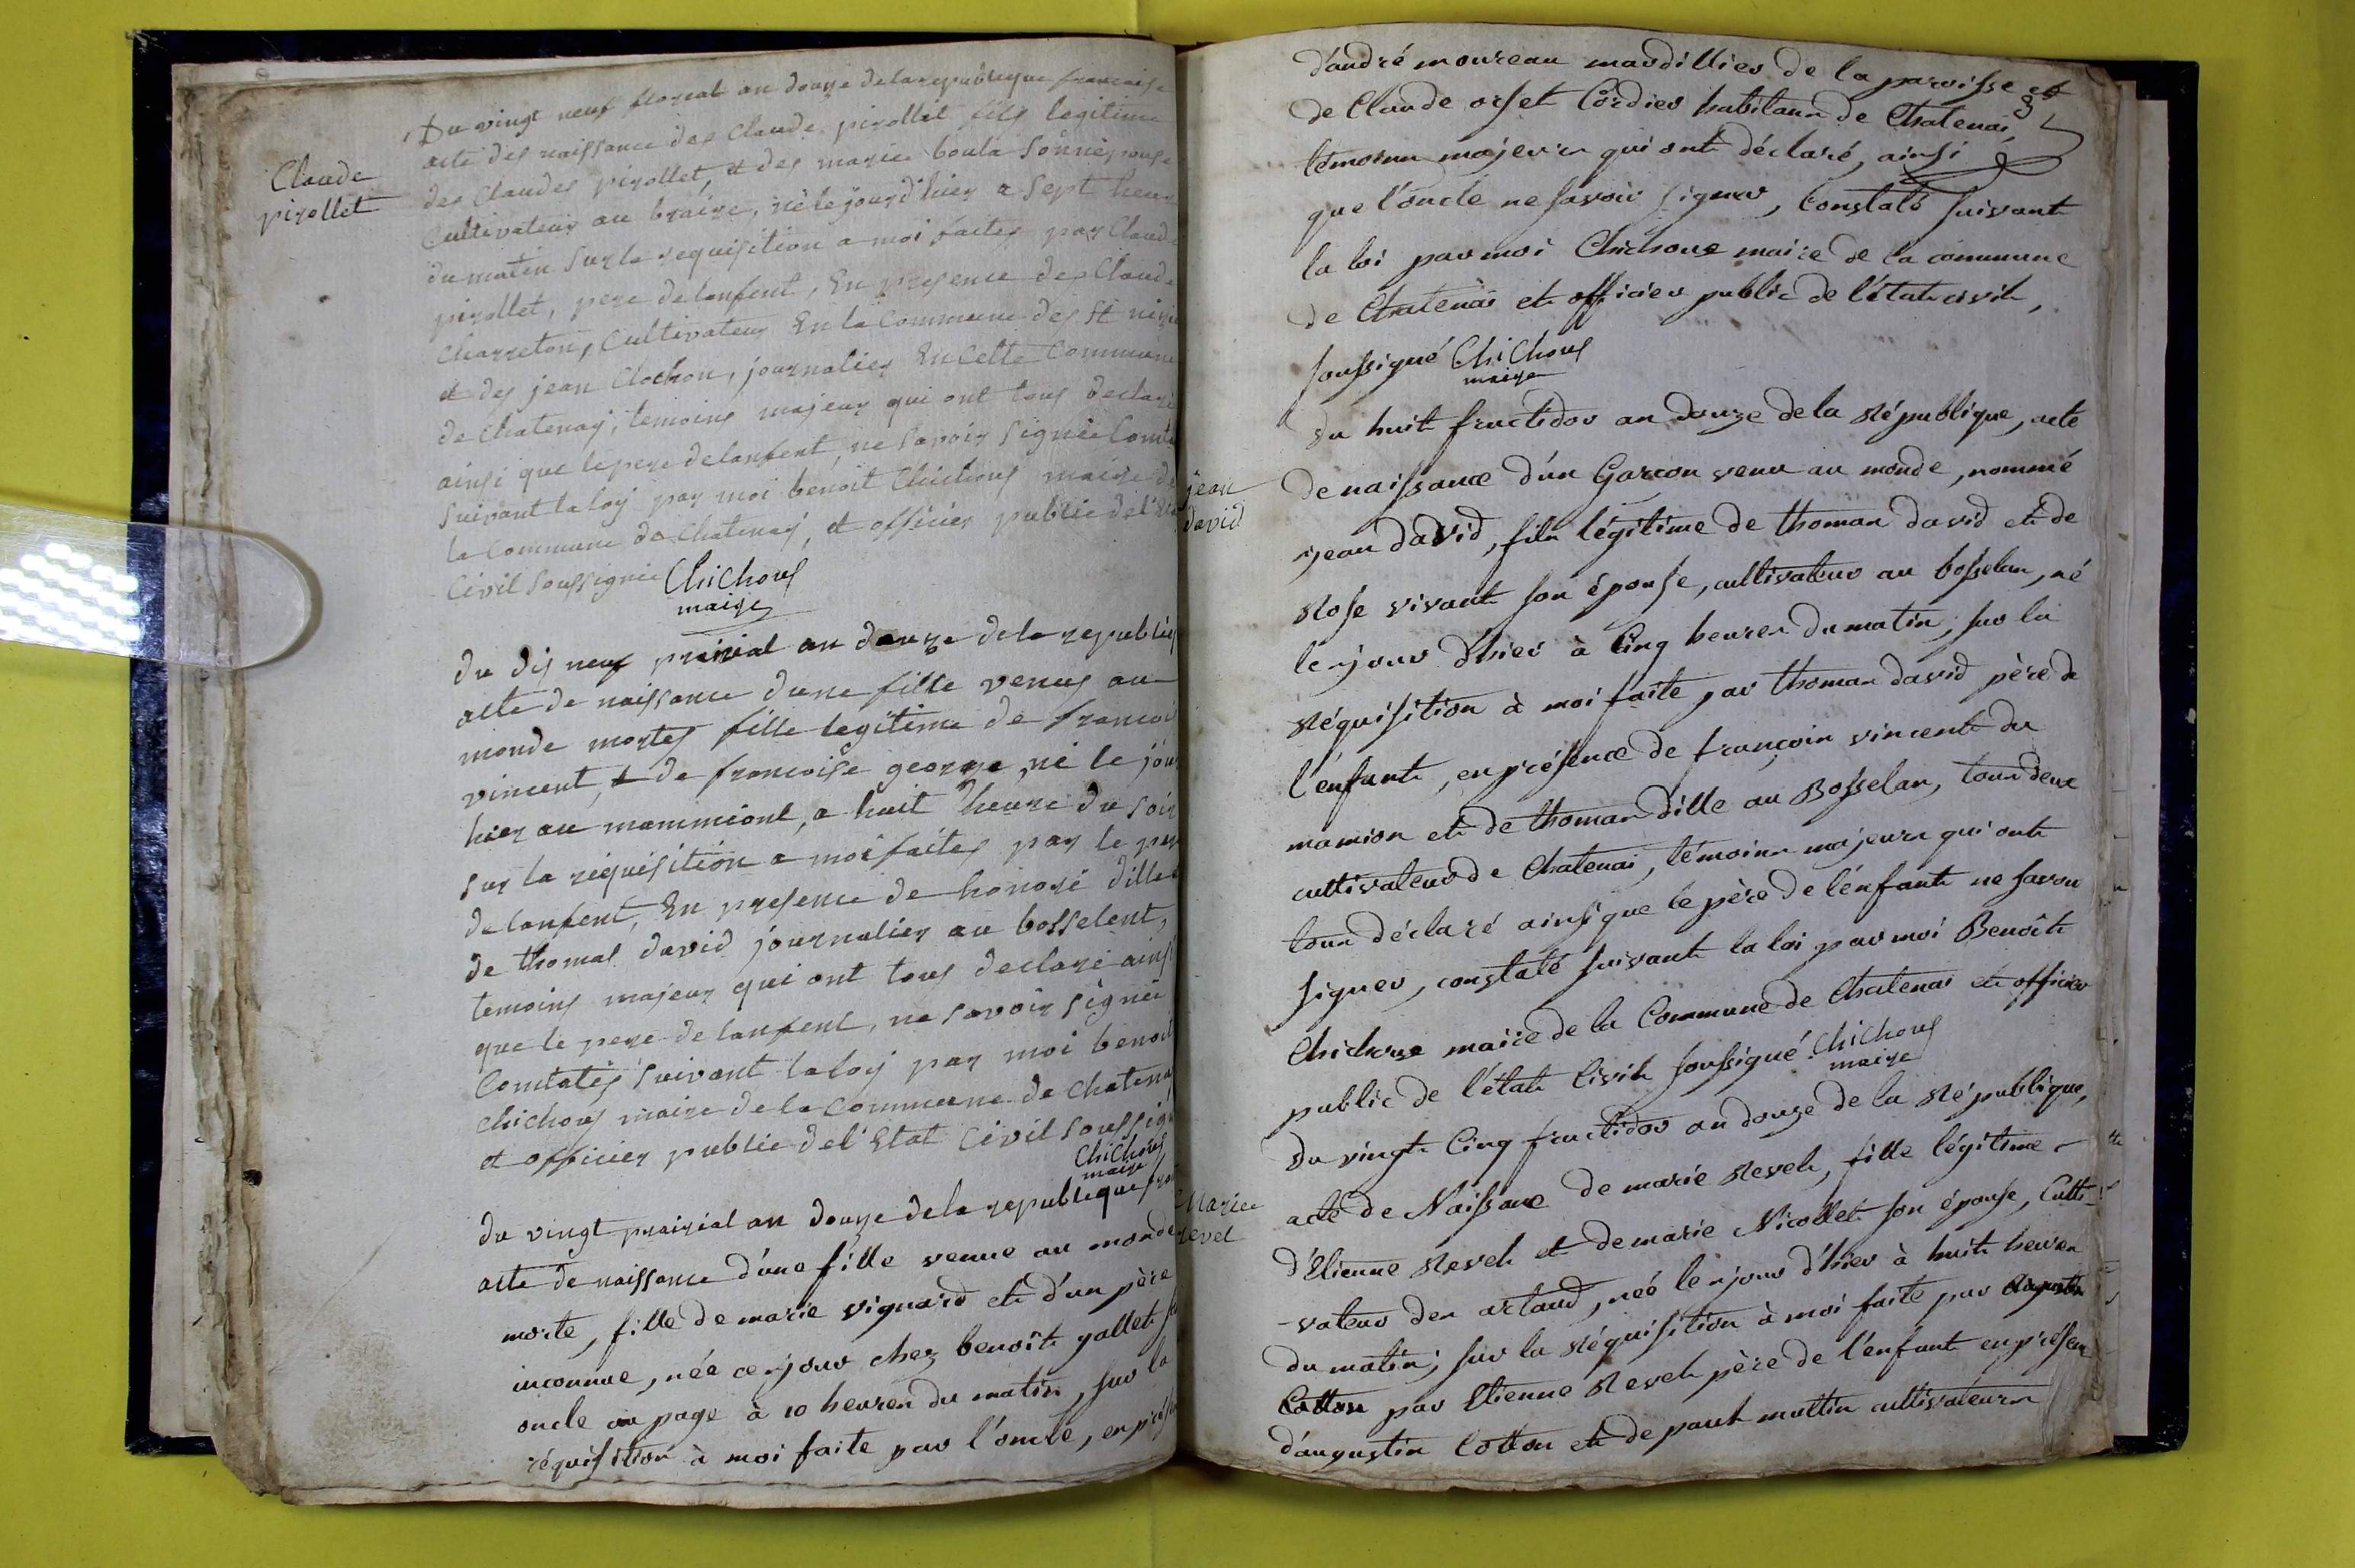 Claude
pirollet
Du vingt neuf floreal an douze dela republique francaise
acte des naissance des Claude pirollet fils legitime
des Claudes pirollet, et des marie boula sonnépouse
Cultivateur au braire, né le jourd'hier a sept heur
du matin Sur la requisition a moi faites par Claude
pirollet, pere delanfent, En presence des Claude
Charreton, Cultivateur En la Commune des St nizie
et des jean Clochon, journalier En Cette Commune
de chatenay, temoins majeur qui ont tous declaré
ainsi que le pere delanfent, ne savoir signée Comta
suivant la loy par moi benoit Chichous maire de
la Commune de Chatenay, et officier public de l'Eta
Civil Soussignée Chichous
maire
du dis neuf prairial an douze dela republiq
acte de naissance dune fille venus au
monde mortes fille legitime de francois
vincent, et de francoise george, né le jour
hier au mammiont, a huit heure du soir
sur la requisition a moi faites par le per
delanfent, En presence de honoré dille
de thomas david journalier au bosselent,
temoins majeur qui ont tous declaré ainsi
que le pere de lanfent, ne savoir signée
Comtatés suivant la loy par moi benoit
chichous maire de la commune de chatenay
et officier public del'Etat Civil soussign
Chichous
maire
du vingt prairial an douze dela republique fra
acte de naissance d'une fille venue au monde
morte, fille de marie vignard et d'un père
inconnue, née ce jour chez benoît gallet so
oncle au page à 10 heures du matin, sur la
réquisition à moi faite par l'oncle, en prése
d'andré moureau mardillier de la paroisse et
de Claude orset Cordier habitans de Chatenai,
témoins majeurs qui ont déclaré, ainsi
que l'oncle ne savoir signer, Constaté suivant
la loi par moi Chichoux maire de la commune
de Chatenai et officier public de l'état civil,
soussigné Chichous
maire
jean
david
du huit fructidor an douze de la République, acte
de naissance d'un Garcon venu au monde, nommé
jean david, fils légitime de thomas david et de
Rose vivant son épouse, cultivateur au bosselan, né
le jour d'hier à Cinq heures du matin, sur la
Réquisition à moi faite par thomas david père de
l'enfant, en présence de françois vincent du
mamion et de thomas dille au Bosselan, tous deux
cultivateur de Chatenai, témoins majeurs qui ont
tous déclaré ainsi que le père de l'enfant ne savoir
signer, constaté suivant la loi par moi Benoît
Chichoux maire de la Commune de Chatenai et officier
public de l'état Civil soussigné Chichous
maire
Marie
revel
du vingt Cinq fructidor an douze de la République,
acte de Naissance de marie Revel, fille légitime
d'Etienne Revel et de marie Nicollet son épouse, Culti-
-vateur des artaud, née le jour d'hier à huit heures
du matin, sur la Réquisition à moi faite par Augustin
Cotton par Etienne Revel père de l'enfant en présen
d'augustin Cotton et de paul mottin cultivateurs